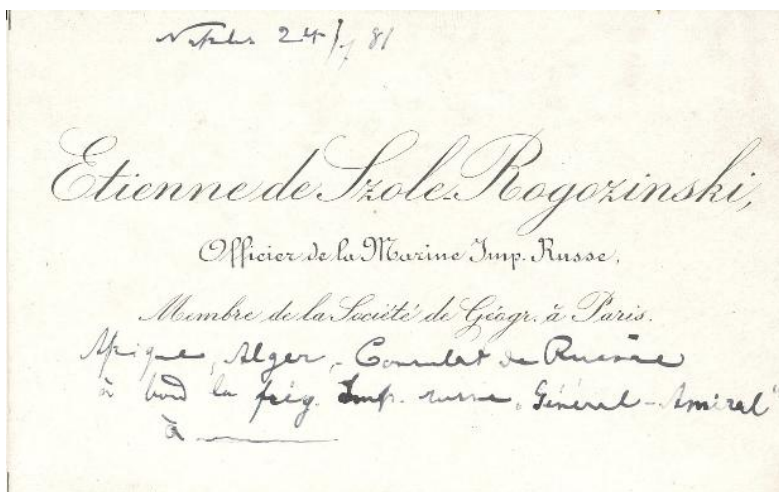 Naples 24/1 81
Etienne de Szolc-Rogozinski,
Officier de la Marine Imp. Russe.
Membre de la Société de Géogr. à Paris.
Afrique, Alger, - Consulat de Russie
à bord la frég. Imp. russe „Général-Amiral"
à